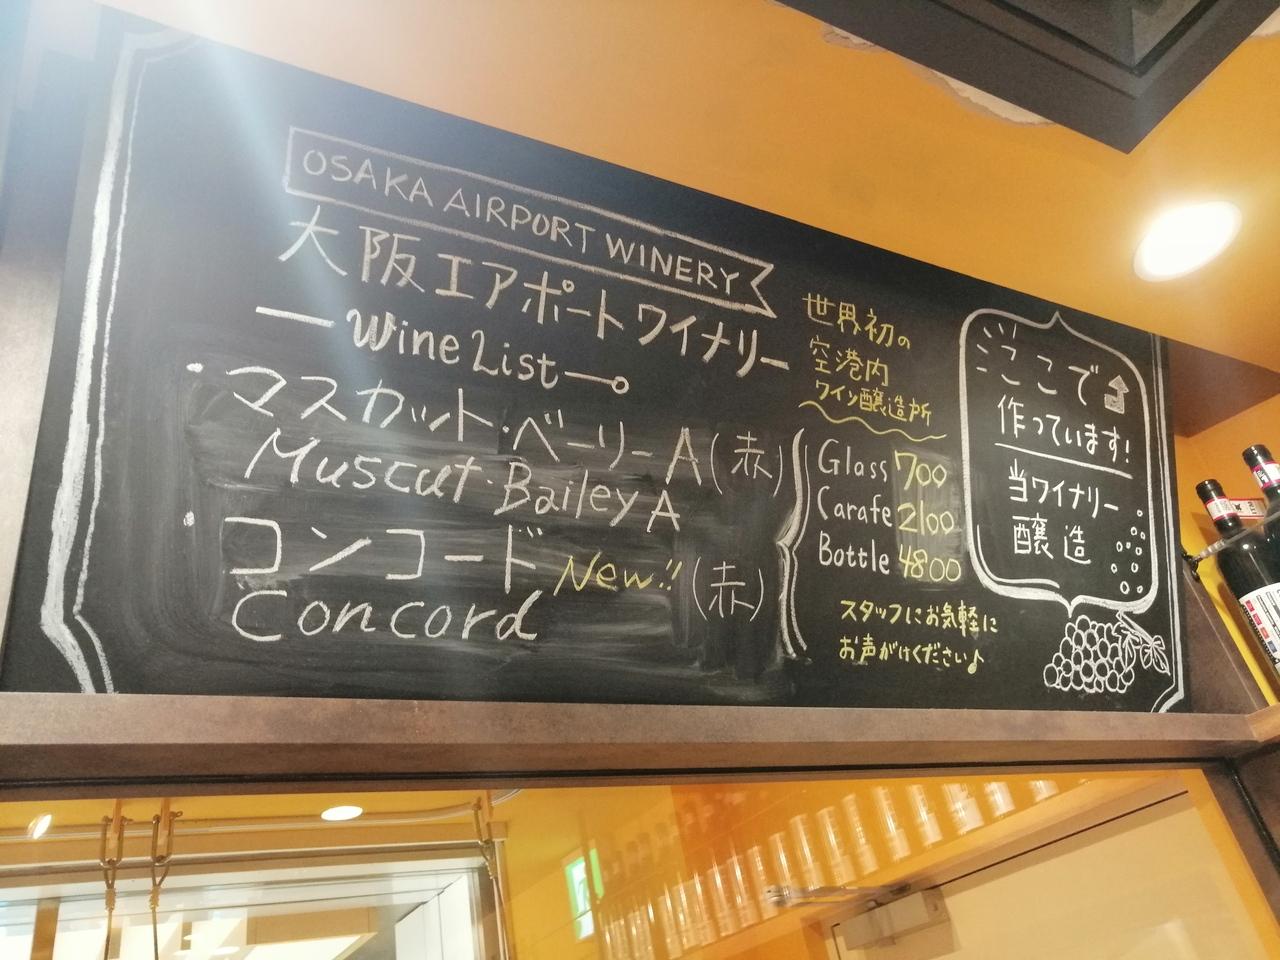 OSAKA AIRPORT WINERY
大阪エアポートワイナリー
Wine List
・マスカット・ベーリーA(赤)
Muscut・Bailey A
・コンコード New!! (赤)
Concord
世界初の
空港内
ワイン醸造所
Glass 700
Carafe 2100
Bottle 4800
スタッフにお気軽に
お声がけください♪
ここで
作っています!
当ワイナリー
醸造